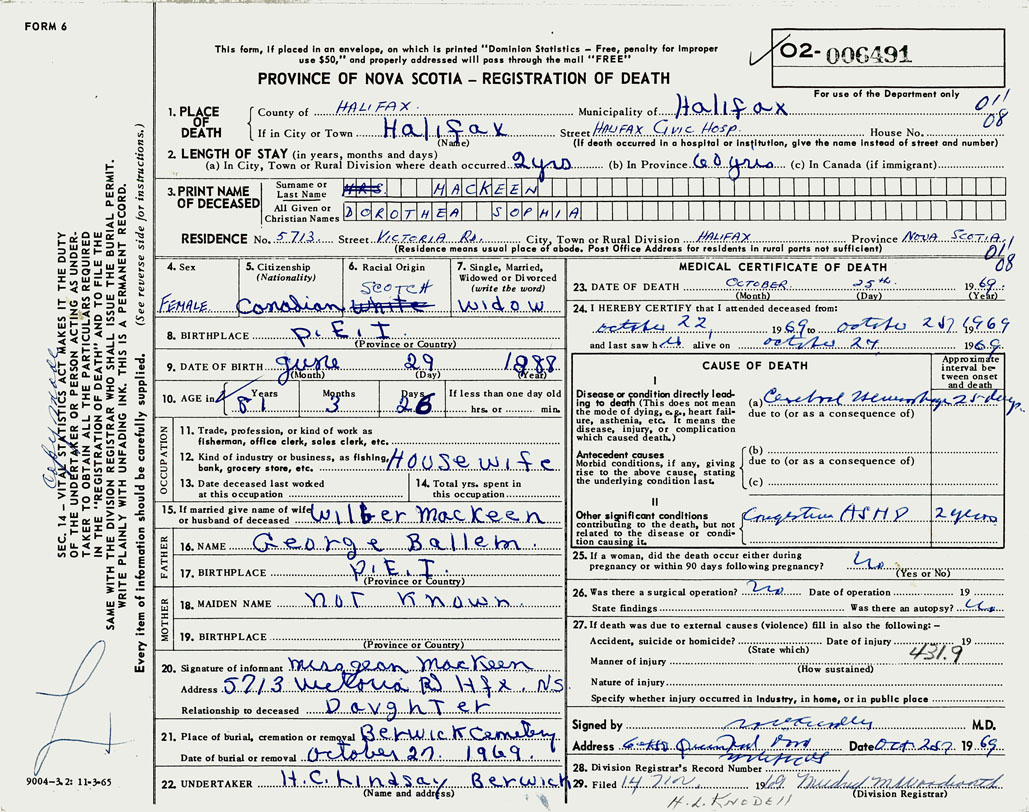 FORM 6
This form, if placed in an envelope, on which is printed "Dominion Statistics – Free, penalty for improper
use $50," and properly addressed will pass through the mail "FREE"
PROVINCE OF NOVA SCOTIA – REGISTRATION OF DEATH
02- 006491
For use of the Department only
1. PLACE OF DEATH
County of HALIFAX. Municipality of Halifax 01'
08
If in City or Town Halifax Street HALIFAX CIVIC HOSP. House No.
(Name) (If death occurred in a hospital or institution, give the name instead of street and number)
2. LENGTH OF STAY (in years, months and days)
(a) In City, Town or Rural Division where death occurred 2 yrs (b) In Province 60 yrs (c) In Canada (if immigrant)
3. PRINT NAME OF DECEASED
Surname or Last Name MRS MACKEEN
All Given or Christian Names DOROTHEA SOPHIA
RESIDENCE No. 5713 Street VICTORIA RD. City, Town or Rural Division HALIFAX Province NOVA SCOTIA
(Residence means usual place of abode. Post Office Address for residents in rural parts not sufficient) 01'
08
4. Sex
FEMALE
5. Citizenship
(Nationality)
Canadian
6. Racial Origin
SCOTCH
White
7. Single, Married,
Widowed or Divorced
(write the word)
widow
8. BIRTHPLACE P.E.I.
(Province or Country)
9. DATE OF BIRTH June 29 1888
(Month) (Day) (Year)
10. AGE in Years 81 Months 3 Days 26 If less than one day old
hrs. or min.
OCCUPATION
11. Trade, profession, or kind of work as
fisherman, office clerk, sales clerk, etc.
12. Kind of industry or business, as fishing, Housewife
bank, grocery store, etc.
13. Date deceased last worked
at this occupation
14. Total yrs. spent in
this occupation
15. If married give name of wife
or husband of deceased Wilber MacKeen
FATHER
16. NAME George Ballem.
17. BIRTHPLACE P.E.I.
(Province or Country)
MOTHER
18. MAIDEN NAME not known.
19. BIRTHPLACE
(Province or Country)
20. Signature of informant Mrs Jean MacKeen
Address 5713 Victoria Rd Hfx. N.S
Relationship to deceased Daughter
21. Place of burial, cremation or removal Berwick Cemetery
Date of burial or removal October 27. 1969.
22. UNDERTAKER H.C. Lindsay Berwick
(Name and address)
MEDICAL CERTIFICATE OF DEATH
23. DATE OF DEATH OCTOBER 25th 1969.
(Month) (Day) (Year)
24. I HEREBY CERTIFY that I attended deceased from:
October 22, 1969 to October 25, 1969
and last saw her alive on October 24 1969.
CAUSE OF DEATH
Approximate
interval be-
tween onset
and death
I
Disease or condition directly lead-
ing to death (This does not mean
the mode of dying, e.g., heart fail-
ure, asthenia, etc. It means the
disease, injury, or complication
which caused death.)
(a) Cerebral Hemorrhage 25 days.
due to (or as a consequence of)
Antecedent causes
Morbid conditions, if any, giving
rise to the above cause, stating
the underlying condition last.
(b)
due to (or as a consequence of)
(c)
II
Other significant conditions
contributing to the death, but not
related to the disease or condi-
tion causing it.
Congestive ASHD 2 years
25. If a woman, did the death occur either during
pregnancy or within 90 days following pregnancy? No
(Yes or No)
26. Was there a surgical operation? No Date of operation 19
State findings Was there an autopsy? No
27. If death was due to external causes (violence) fill in also the following: –
Accident, suicide or homicide? Date of injury 19
(State which) 431.9
Manner of injury
(How sustained)
Nature of injury
Specify whether injury occurred in Industry, in home, or in public place
Signed by M.D.
Address Date Oct. 25 1969
28. Division Registrar's Record Number
29. Filed 14 Nov. 1969 Mildred M. Woodworth
(Division Registrar)
H. L. KNODELL
SEC. 14 – VITAL STATISTICS ACT MAKES IT THE DUTY
OF THE UNDERTAKER OR PERSON ACTING AS UNDER-
TAKER TO OBTAIN ALL THE PARTICULARS REQUIRED
IN THE "REGISTRATION OF DEATH" AND TO FILE THE
SAME WITH THE DIVISION REGISTRAR WHO SHALL ISSUE THE BURIAL PERMIT.
WRITE PLAINLY WITH UNFADING INK. THIS IS A PERMANENT RECORD.
Every item of information should be carefully supplied. (See reverse side for instructions.)
9004-3.2: 11-3-65